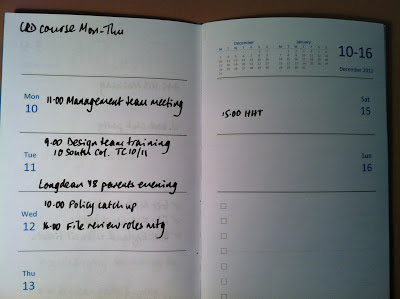 CRD course Mon-Thu
Mon
10
11.00 Management team meeting
9.00 Design team training
10 South Col. TC10/11
Tue
11
Longdean Y8 parents evening
Wed
12
10.00 Policy catch up
14.00 File review roles mtg
Thu
13
December
January
10-16
December 2012
Sat
15
15.00 HHT
Sun
16